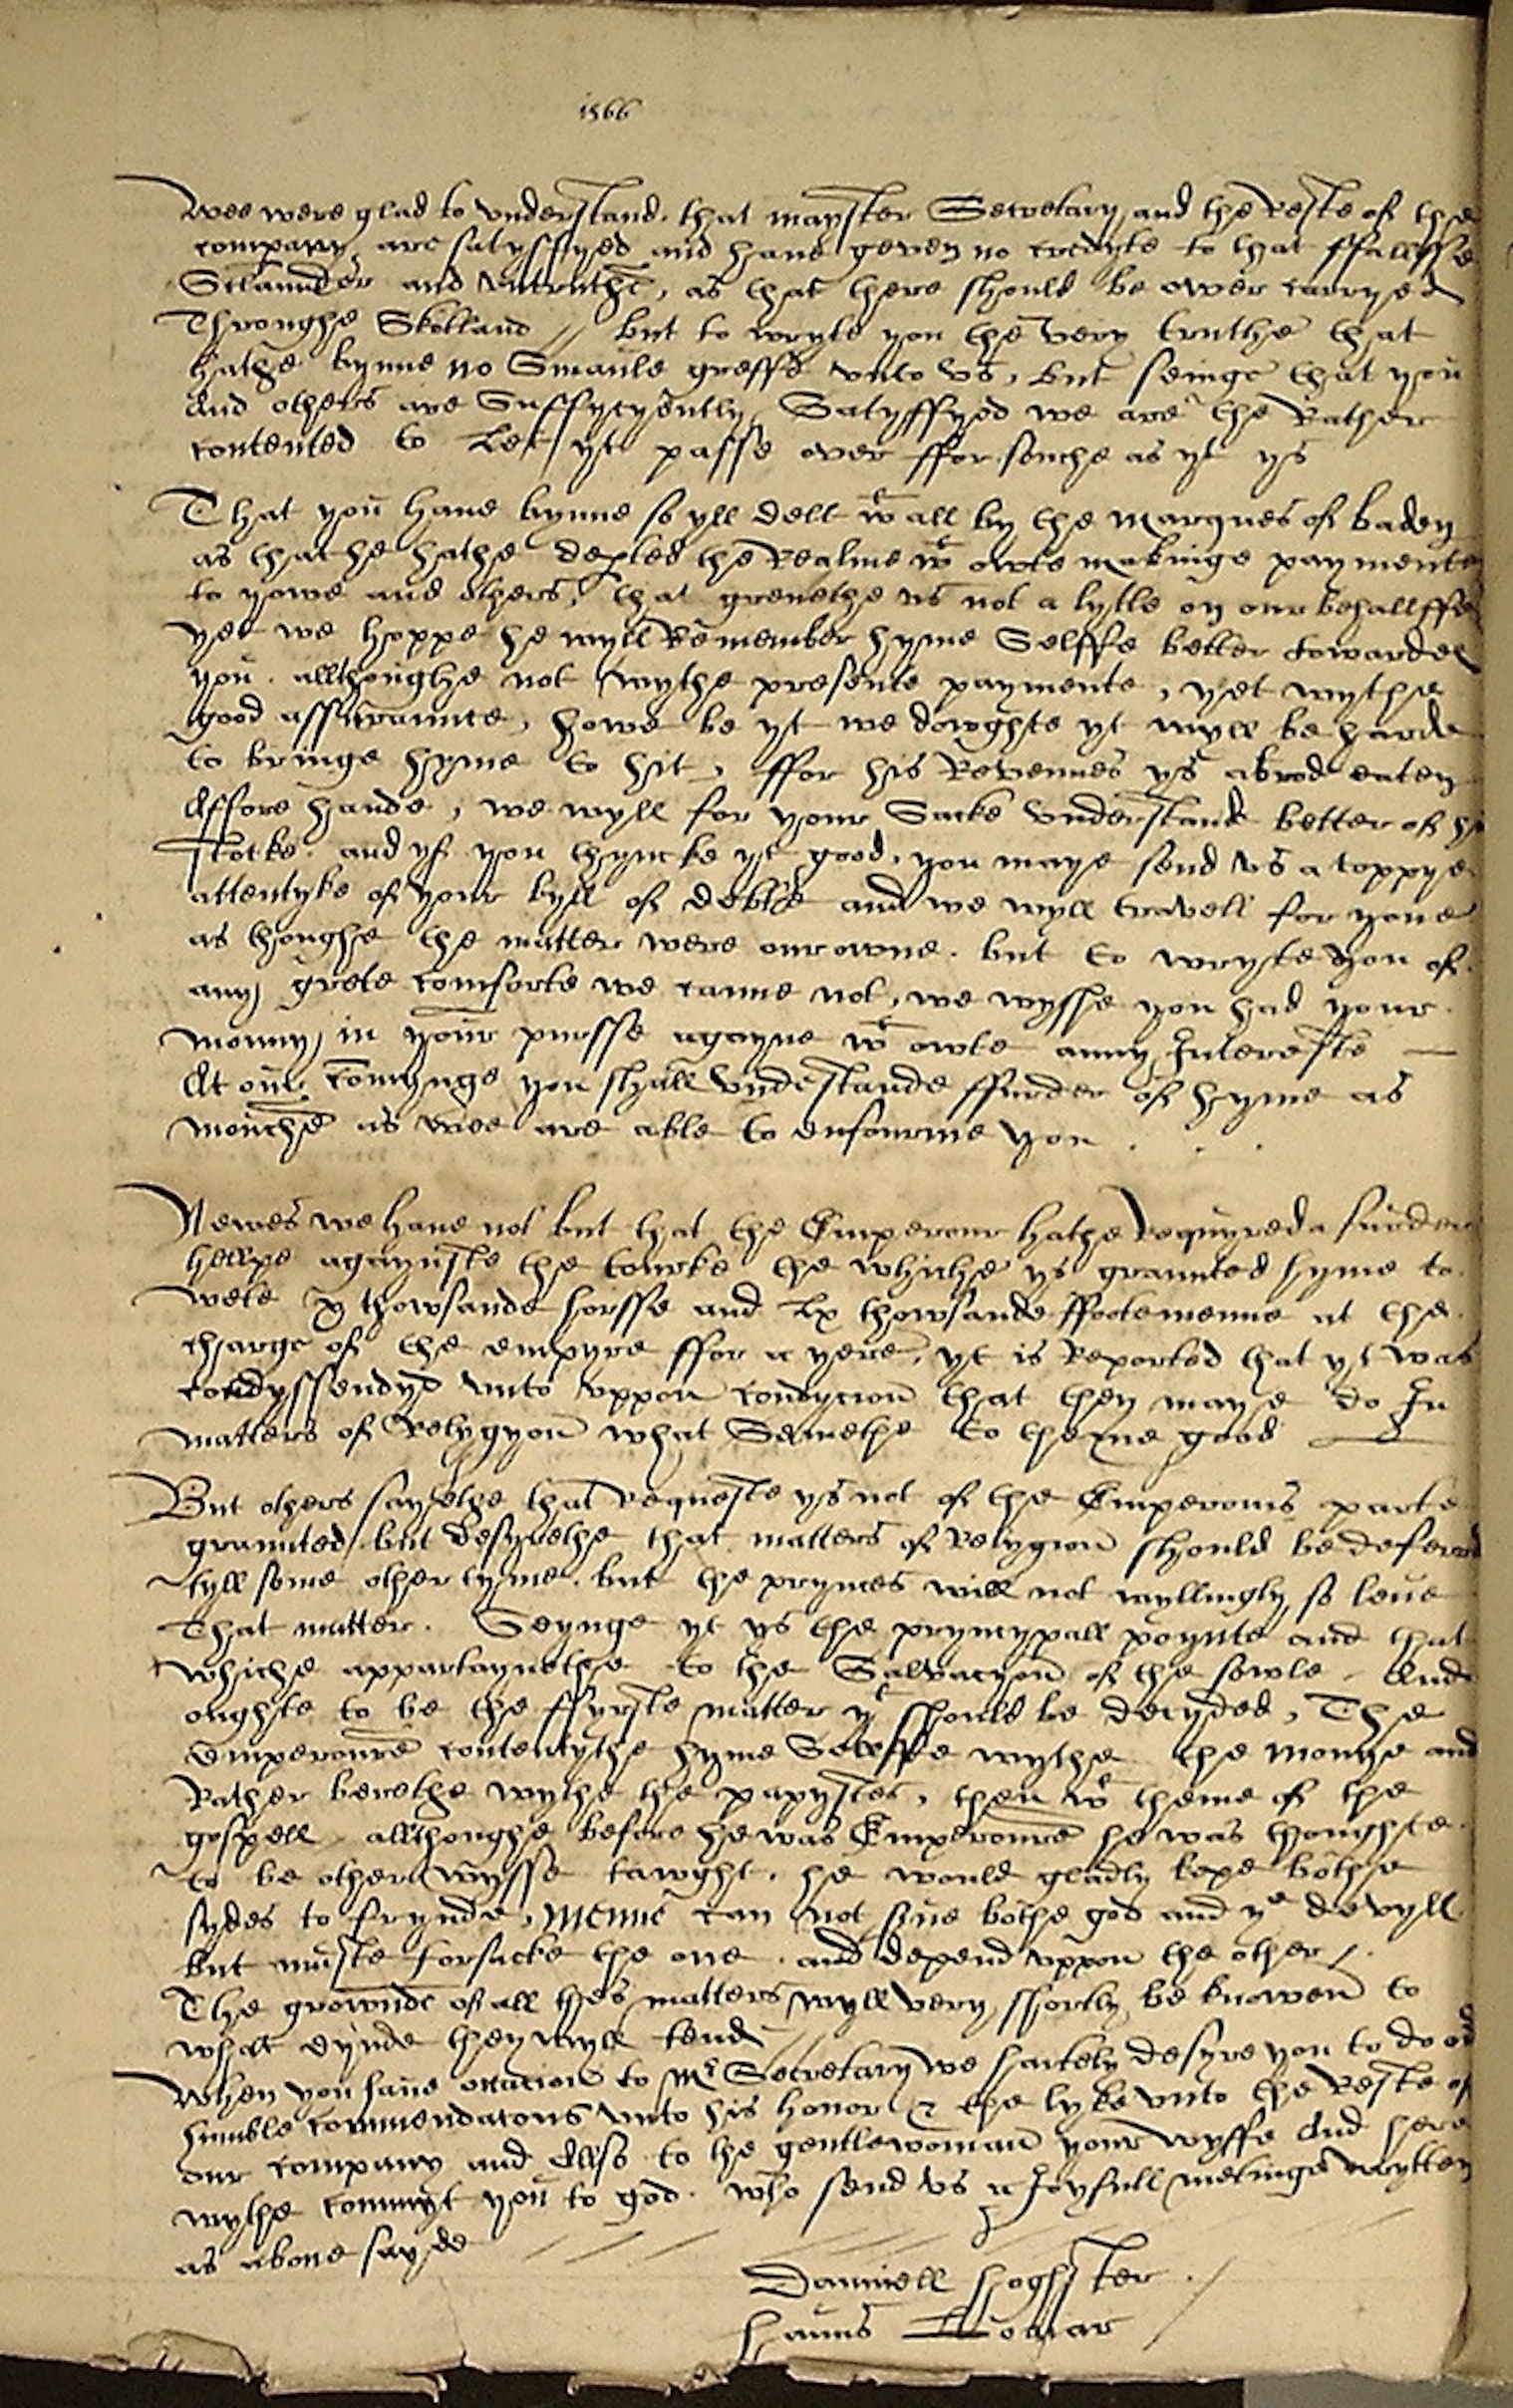 1566
Wee were glad to vnderstand that mayster Secretary and the Reste of the
company are satyffyed and haue geven no credyte to that ffallsse
Sclaunder and vntruthe, as that here should be over carryed
Throughe Skotland // but to wryte you the very truthe that
hathe bynne no Smaule greffe vnto vs, but seinge that you
And others are Suffycyently Satyffyed we are the Rather
contented to Let yt passe over ffor suche as yt ys
That you haue bynne so yll delt wt all by the Marques of baden
as that he hathe depted the Realme wt owte makinge paymente
to yowe and others, that grevethe us not a lytle on our behallffe
yet we hoppe he wyll Remember hyme Selffe better towardes
you. allthoughe not wythe presente paymente, yet wythe
good assuraunce, howe be yt we dowghte yt wyll be harde
to bringe hyme to hit, ffor his Revennes ys abrod eaten
Affore hande, we wyll for your Sacke vnderstand better of hi
stocke. and yf you thyncke yt good, you maye send vs a coppye
attentyke of your byll of debte and we wyll travell for youe
as thoughe the matter were our owne. but to wryte you of
any grete comforte we canne not, we wysshe you had your
monny in your pursse agayne wt owte anny Intereste —
At our comynge you shall vndestande ffurder of hyme as
mouche as wee are able to enfourme you . . .
Newes we haue not but that the Emperour hathe Requyred a surden
hellpe agaynste the tourke the whiche ys graunted hyme to
wete xx thowsande horsse and Lx thowsande ffootemenne at the
charge of the empyre ffor a yere, yt is Reported that yt was
condyssendyd vnto vppon condycion that they maye do In
matters of Relygyon what Semethe to theyme good —
But others sayethe that Requeste ys not of the Emperours parte
graunted but desyrethe that matters of Relygion should be deferred
tyll some other tyme. but the prynces will not wyllingly so leue
That matter. Seynge yt ys the pryncypall poynte and that
whiche appartaynethe to the Salvacyon of the sowle. And
oughte to be the ffyrste matter yt should be decyded, The
Emperoure contentythe hyme Selffe wythe the monye and
Rather berethe wythe the papystes, then wt theme of the
gospell allthoughe before he was Emperoure he was thoughte
to be other wysse tawght. he would gladly kepe bothe
sydes to frynde, Menne can not sarue bothe god and ye devyll
but muste forsacke the one. and depend vppon the other /.
The grownde of all thes matters wyll very shortly be knowen to
what eynde they wyll tend
When you haue occacion to Mr Secretary we hartely desyre you to do or
humble commendacons vnto his honor & the lyke vnto the Reste of
our company and Also to the gentlewoman your wyffe And here
wythe commyt you to god. who send vs a Joyfull metinge wrytten
as aboue sayde
Danniell hoghster
hanns